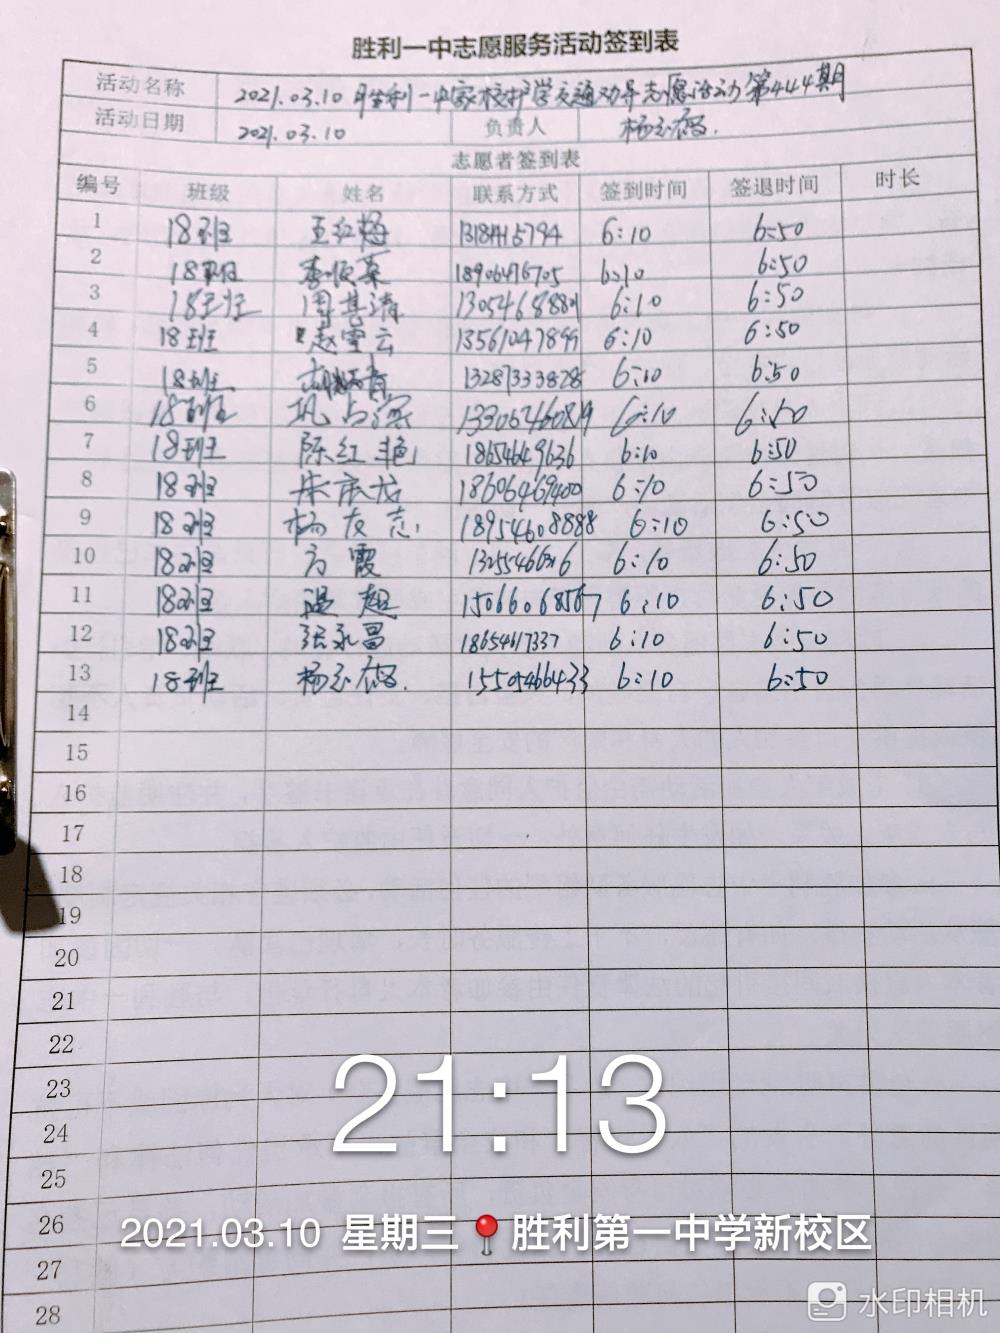 胜利一中志愿服务活动签到表
活动名称 2021.03.10 胜利一中家校护学交通劝导志愿活动第444期
活动日期 2021.03.10 负责人
志愿者签到表
编号 班级 姓名 联系方式 签到时间 签退时间 时长
1 18班 王红梅 6:10 6:50
2 18班 18906496705 6:10 6:50
3 18班 周其清 6:10 6:50
4 18班 赵雪云 13561047899 6:10 6:50
5 18班 13287333828 6:10 6:50
6 18班 6:10 6:50
7 18班 陈红艳 18654649636 6:10 6:50
8 18班 18606469400 6:10 6:50
9 18班 杨友志 18954608888 6:10 6:50
10 18班 方霞 6:10 6:50
11 18班 温超 15066068567 6:10 6:50
12 18班 张永昌 6:10 6:50
13 18班 15505466433 6:10 6:50
14
15
16
17
18
19
20
21
22
23
24
25
26
27
28
21:13
2021.03.10 星期三 胜利第一中学新校区
水印相机